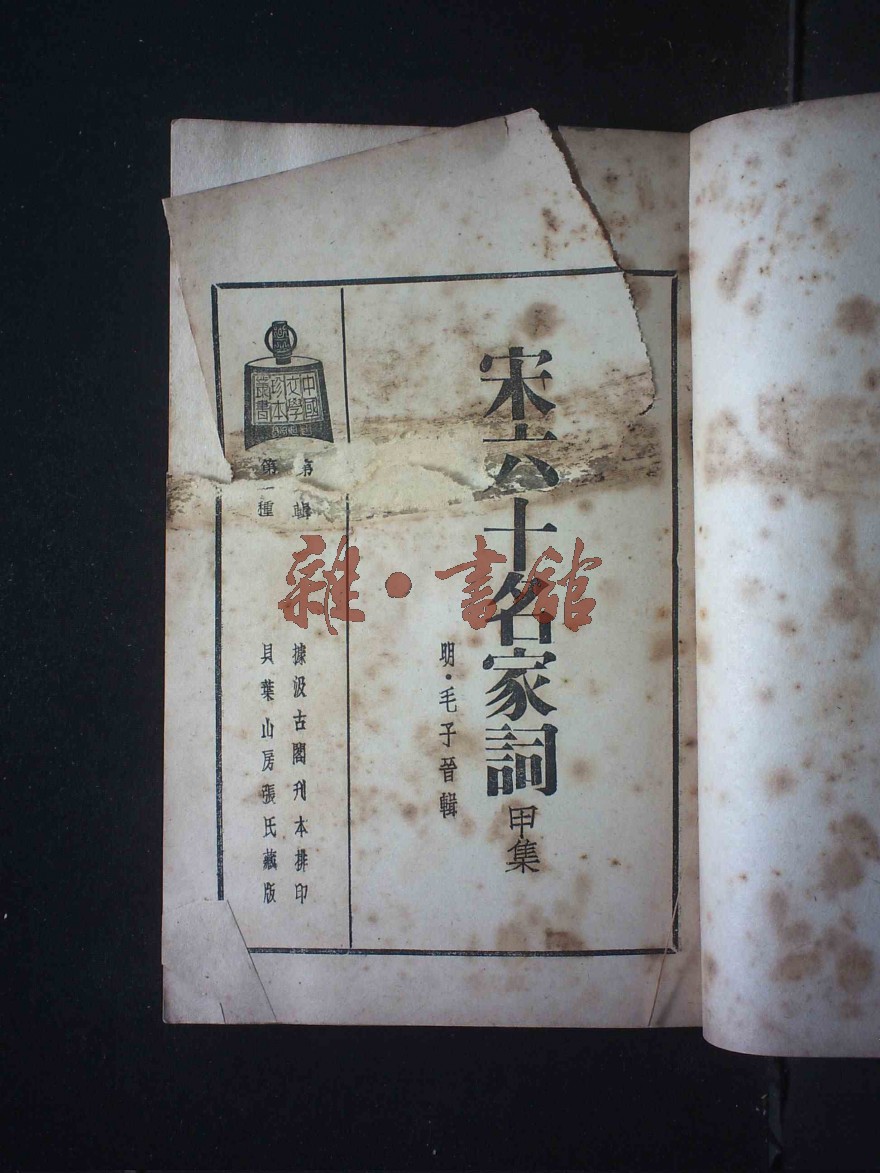 宋六十名家詞 甲集
明·毛子晉輯
中國
文學
珍本
叢書
第一輯
第一種
據汲古閣刊本排印
貝葉山房張氏藏版
雜·書館